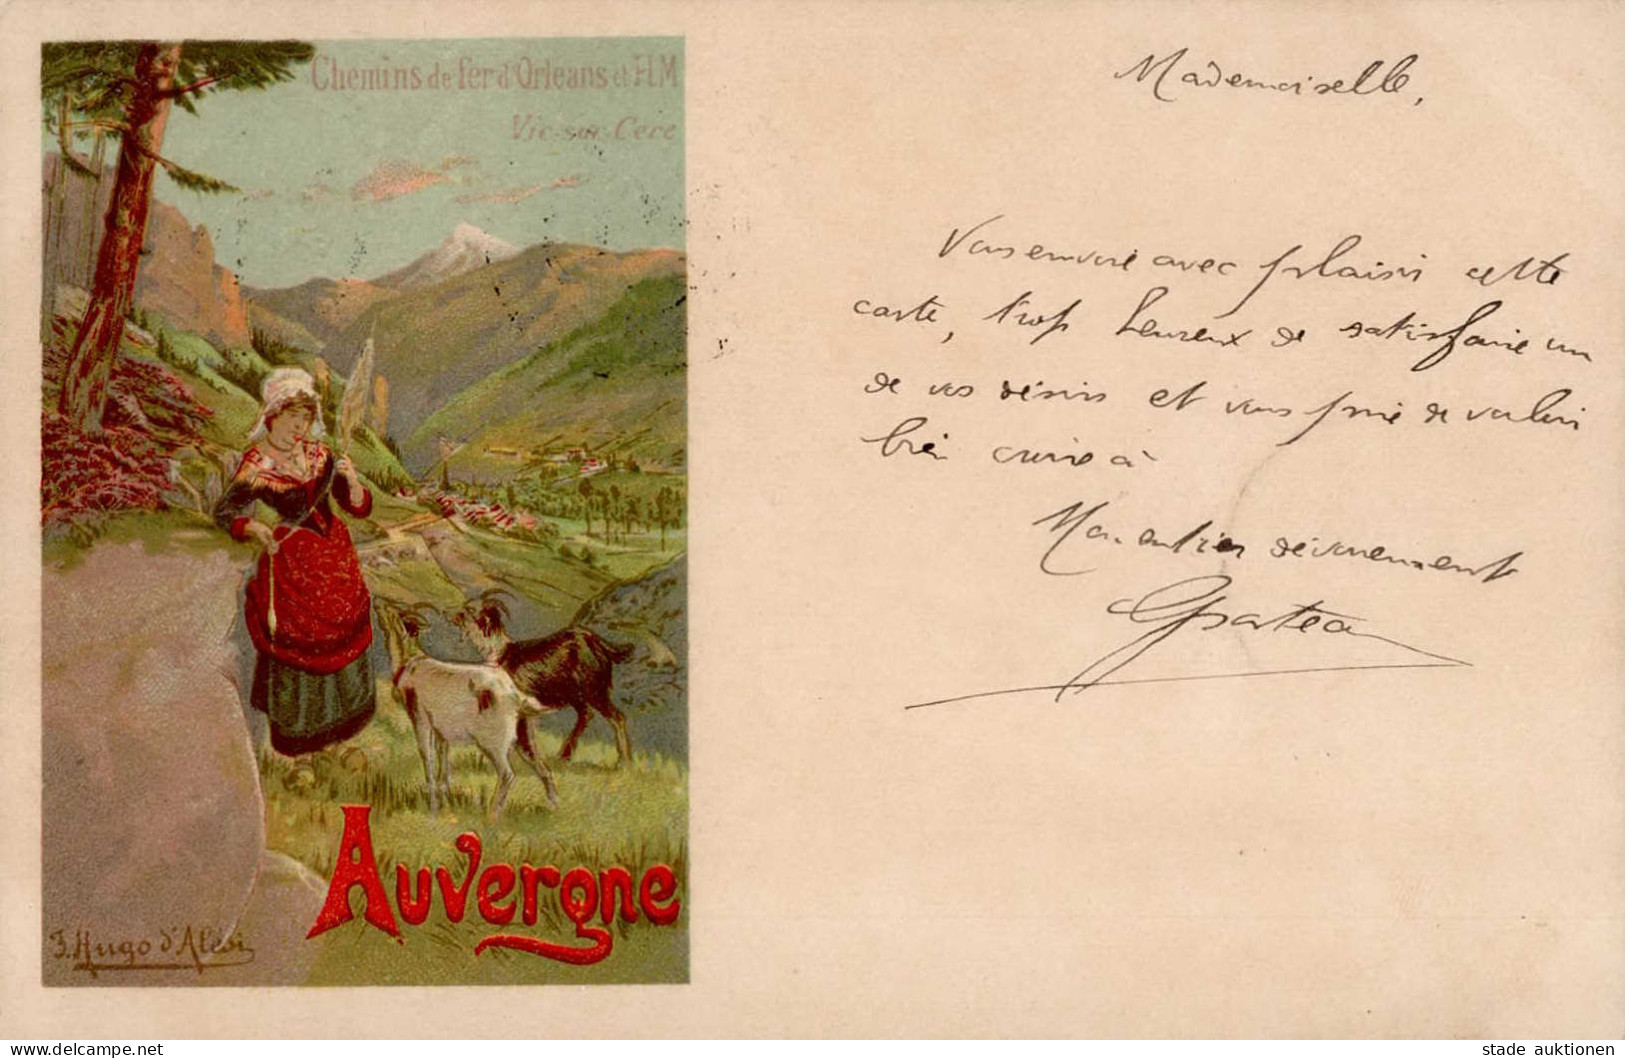 Chemins de fer d'Orleans et P.L.M
Vic-sur-Cere
Auvergne
F. Hugo d'Alesi
Mademoiselle,
Vous envoie avec plaisir cette
carte, trop heureux de satisfaire un
de vos désirs et vous prie de vouloir
bien croire à
Mon entier dévouement
www.delcampe.net
stade auktionen